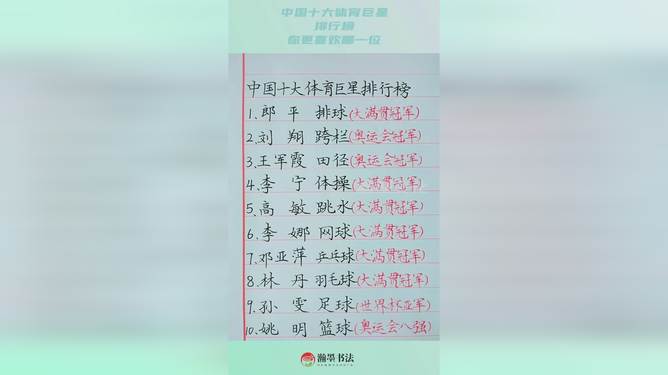 中国十大体育巨星
排行榜
你更喜欢哪一位
中国十大体育巨星排行榜
1.郎平 排球(大满贯冠军)
2.刘翔 跨栏(奥运会冠军)
3.王军霞 田径(奥运会冠军)
4.李宁 体操(大满贯冠军)
5.高敏 跳水(大满贯冠军)
6.李娜 网球(大满贯冠军)
7.邓亚萍 乒乓球(大满贯冠军)
8.林丹 羽毛球(大满贯冠军)
9.孙雯 足球(世界杯亚军)
10.姚明 篮球(奥运会八强)
瀚墨书法